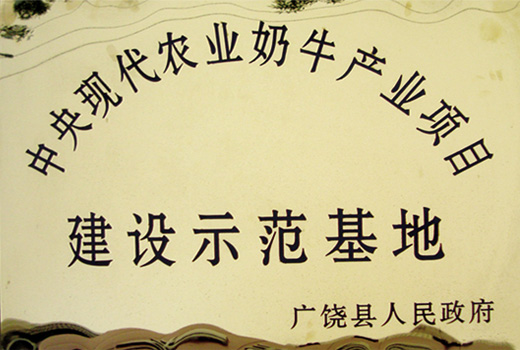 中央现代农业奶牛产业项目
建设示范基地
广饶县人民政府